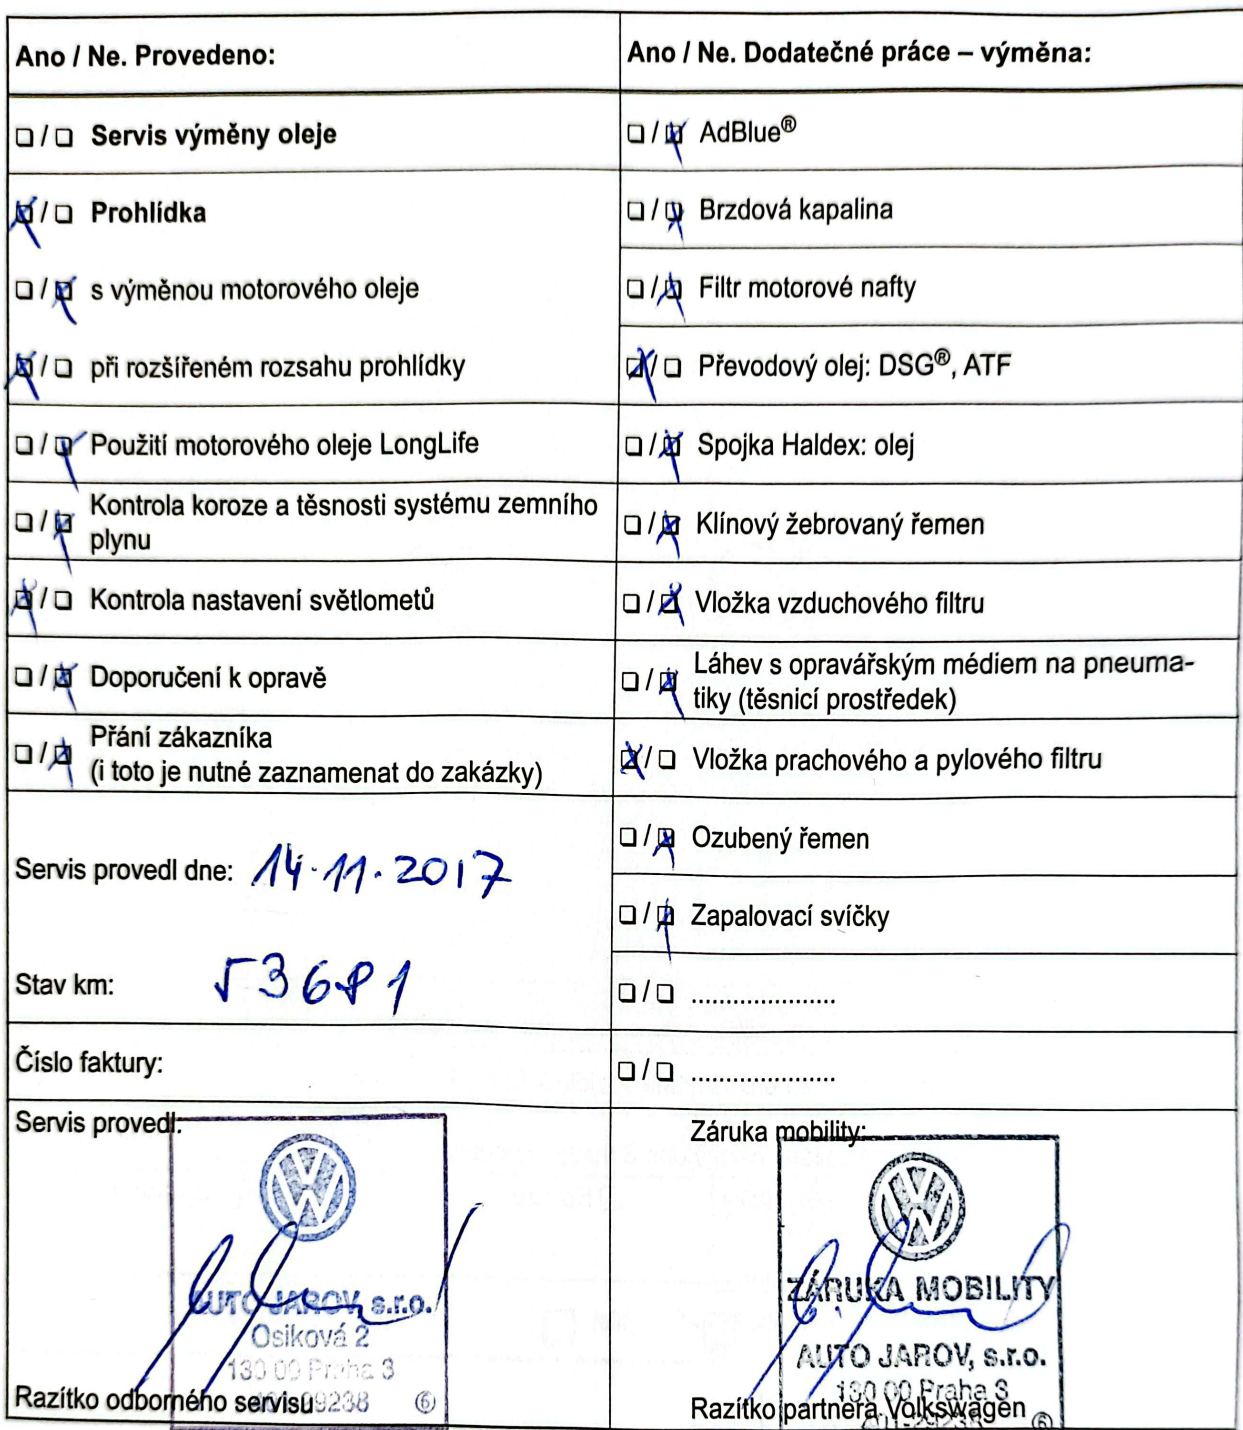 Ano / Ne. Provedeno:
☐ / ☐ Servis výměny oleje
☒ / ☐ Prohlídka
☐ / ☒ s výměnou motorového oleje
☒ / ☐ při rozšířeném rozsahu prohlídky
☐ / ☒ Použití motorového oleje LongLife
☐ / ☒ Kontrola koroze a těsnosti systému zemního
plynu
☒ / ☐ Kontrola nastavení světlometů
☐ / ☒ Doporučení k opravě
☐ / ☒ Přání zákazníka
(i toto je nutné zaznamenat do zakázky)
Servis provedl dne: 14.11.2017
Stav km: 53681
Číslo faktury:
Servis provedl:
AUTO JAROV, s.r.o.
Osiková 2
130 00 Praha 3
Razítko odborného servisu
29238 ⑥
Ano / Ne. Dodatečné práce – výměna:
☐ / ☒ AdBlue®
☐ / ☒ Brzdová kapalina
☐ / ☒ Filtr motorové nafty
☒ / ☐ Převodový olej: DSG®, ATF
☐ / ☒ Spojka Haldex: olej
☐ / ☒ Klínový žebrovaný řemen
☐ / ☒ Vložka vzduchového filtru
☐ / ☒ Láhev s opravářským médiem na pneuma-
tiky (těsnicí prostředek)
☒ / ☐ Vložka prachového a pylového filtru
☐ / ☒ Ozubený řemen
☐ / ☒ Zapalovací svíčky
☐ / ☐ .....................
☐ / ☐ .....................
Záruka mobility:
ZÁRUKA MOBILITY
AUTO JAROV, s.r.o.
130 00 Praha 3
Razítko partnera Volkswagen
29238 ⑥